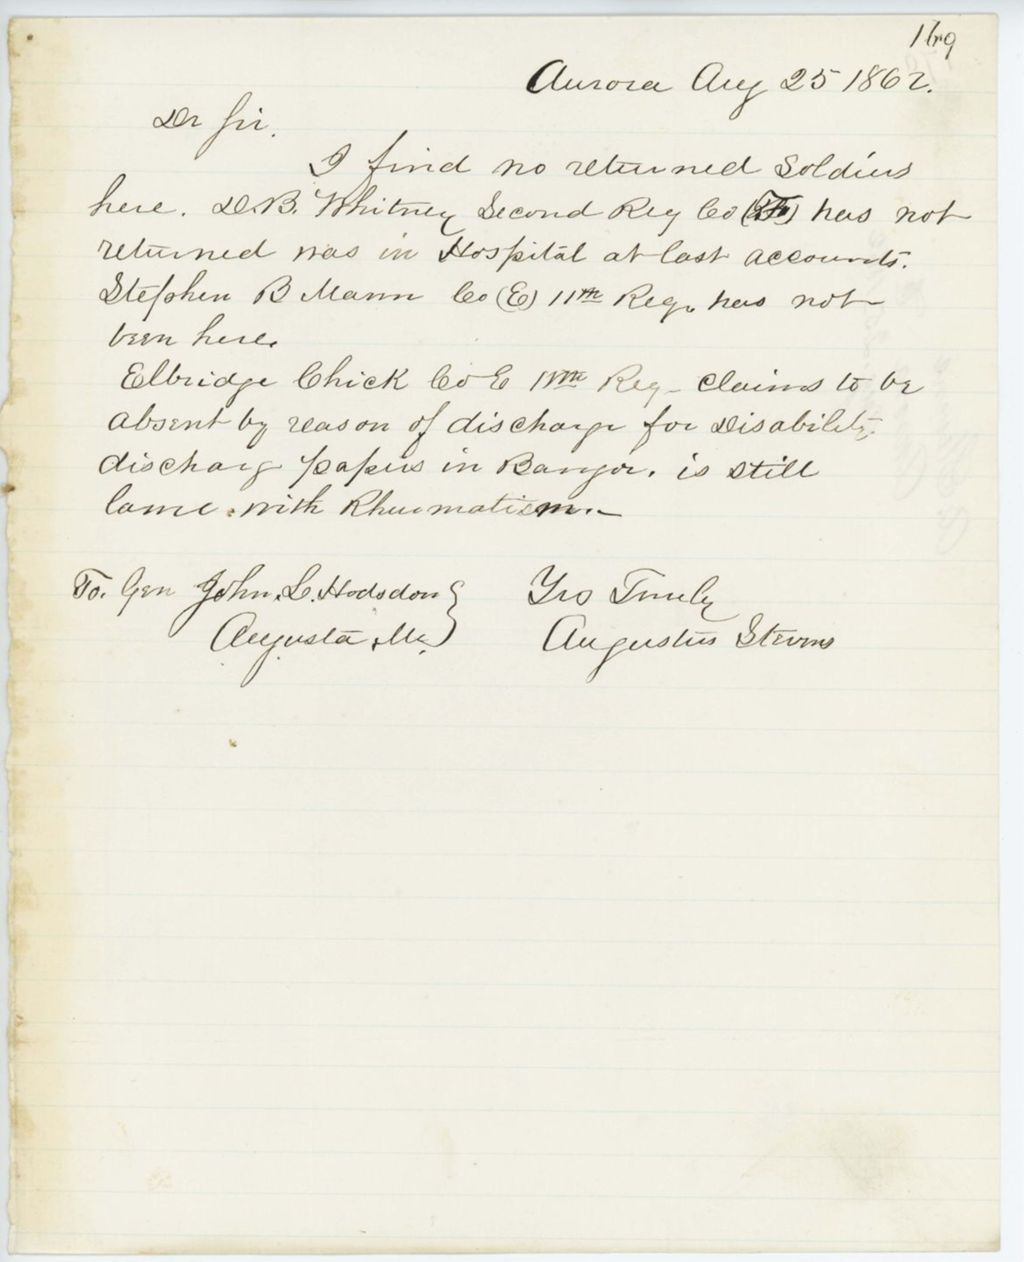 169
Aurora Aug 25 1862.
Dr Sir.
I find no returned Soldiers
here. D. B. Whitney Second Reg Co has not
returned was in Hospital at last accounts.
Stephen B Mann Co (E) 11th Reg. has not
been here.
Elbridge Chick Co E 11th Reg - claims to be
absent by reason of discharge for Disability.
discharg papers in Bangor. is still
lame. with Rheumatism.-
To. Gen John. L. Hodsdon } Yrs Truely
Augusta, Me. Augustus Stevens